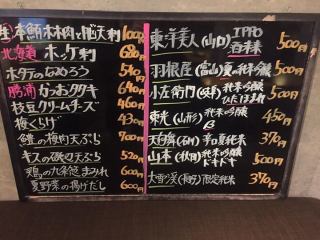 生本鮪木木肉と脳天刺
北海道 ホッケ刺 680円
ホタテのなめろう 540円
勝浦 かつおタタキ 680円
枝豆クリームチーズ 460円
梅くらげ 430円
鱧の梅肉天ぷら 700円
キスの磯辺天ぷら 520円
鶏の九条葱まみれ 600円
夏野菜の揚げだし 600円
東洋美人(山口) IPPO 500円
羽根屋(富山)夏の純米吟醸 500円
小左衛門(岐阜)純米吟醸 ひだほまれ 500円
東光(山形)純米吟醸 450円
天白鷹 辛口夏純米 370円
山本(秋田)純米吟醸 ドキドキ 500円
大雪渓(長野)限定純米 370円